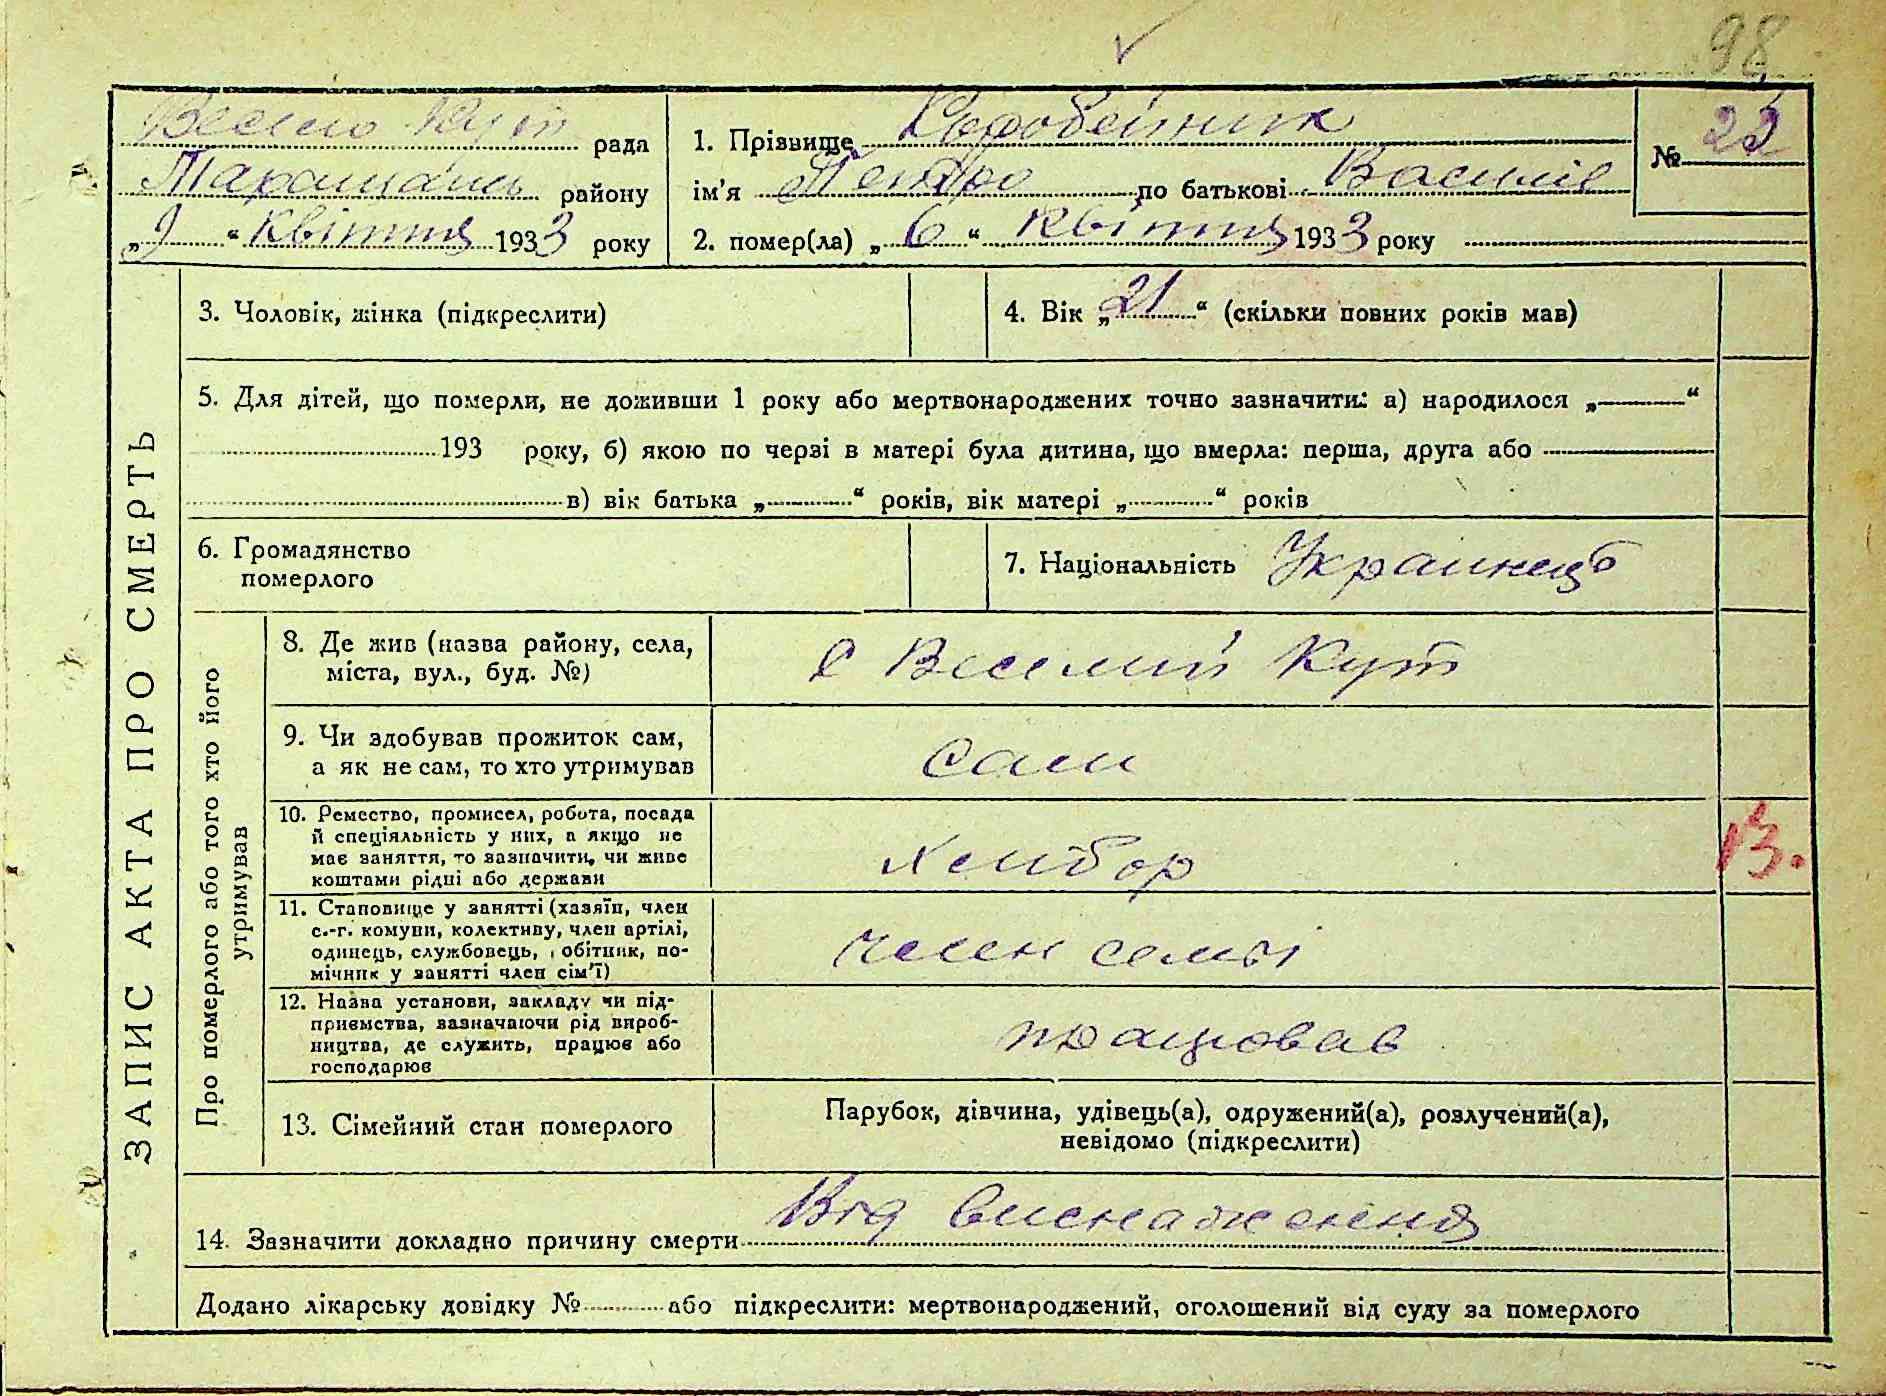 98
Весело Кут рада
Таращансь району
„9“ Квітня 1933 року
1. Прізвище Коробейник
ім’я Петро по батькові Василів
2. помер(ла) „6“ Квітня 1933 року
№ 22
ЗАПИС АКТА ПРО СМЕРТЬ
3. Чоловік, жінка (підкреслити)
4. Вік „21“ (скільки повних років мав)
5. Для дітей, що померли, не доживши 1 року або мертвонароджених точно зазначити: а) народилося „ “
193 року, б) якою по черзі в матері була дитина, що вмерла: перша, друга або
в) вік батька „ “ років, вік матері „ “ років
6. Громадянство
померлого
7. Національність Украинець
Про померлого або того хто його
утримував
8. Де жив (назва району, села,
міста, вул., буд. №)
с Веселий Кут
9. Чи здобував прожиток сам,
а як не сам, то хто утримував
сам
10. Ремество, промисел, робота, посада
й спеціяльність у них, а якщо не
має заняття, то зазначити, чи живе
коштами рідні або держави
Хлибор
13.
11. Становище у занятті (хазяїн, член
с.-г. комуни, колективу, член артілі,
одинець, службовець, обітник, по-
мічник у занятті член сім’ї)
член семьі
12. Назва установи, закладу чи під-
приємства, зазначаючи рід вироб-
ництва, де служить, працює або
господарює
працював
13. Сімейний стан померлого
Парубок, дівчина, удівець(а), одружений(а), розлучений(а),
невідомо (підкреслити)
14. Зазначити докладно причину смерти Від виснаження
Додано лікарську довідку № або підкреслити: мертвонароджений, оголошений від суду за померлого